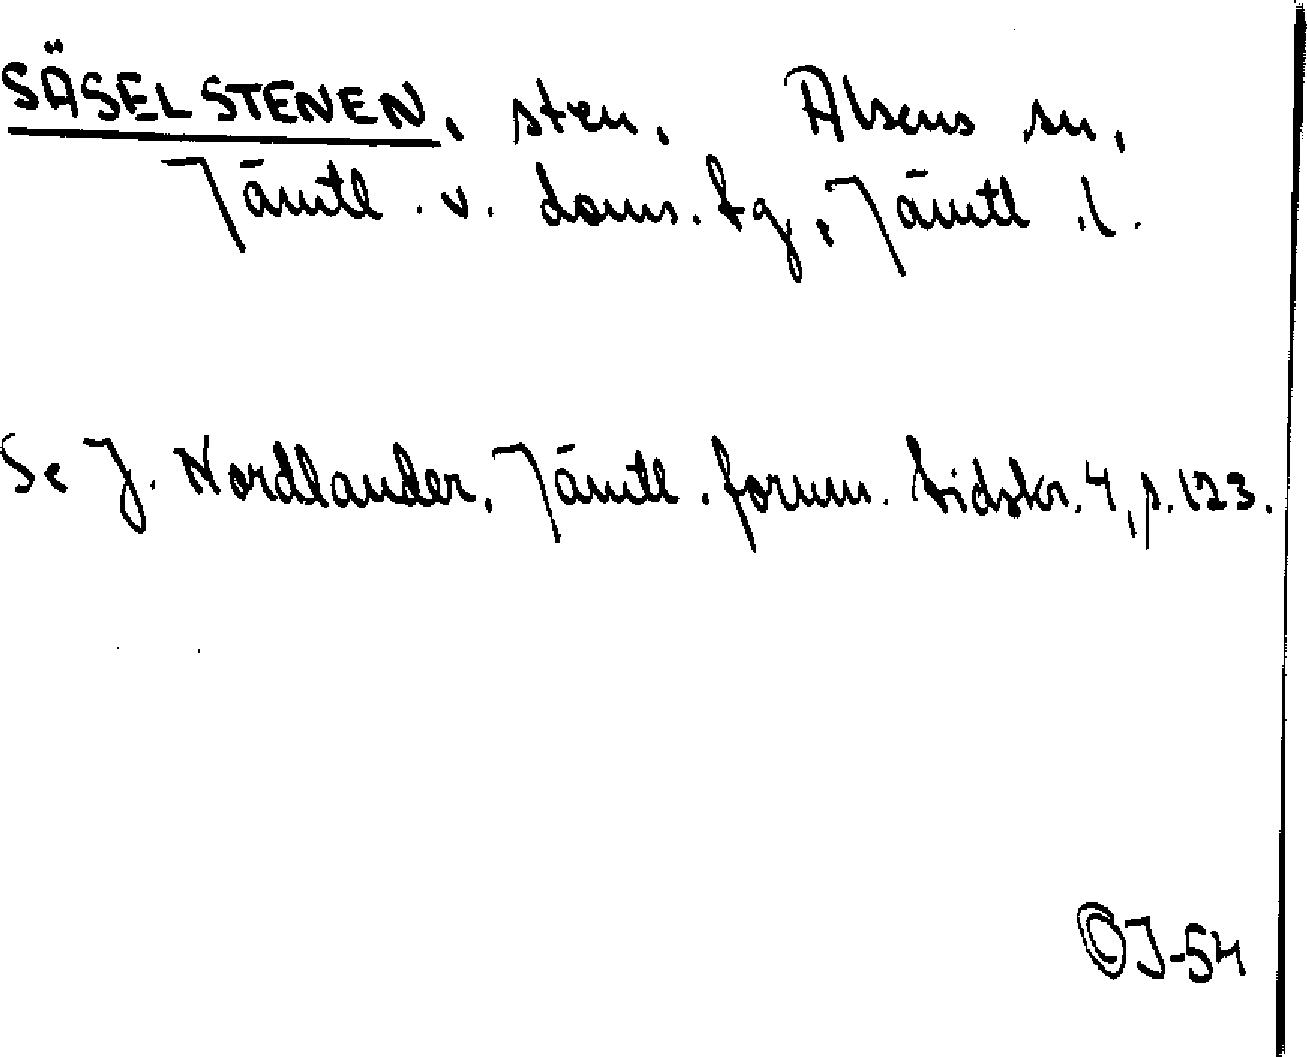 SÄSELSTENEN, sten, Alsens sn,
Jämtl. v. doms. tg, Jämtl. l.
Se J. Nordlander, Jämtl. fornm. tidskr. 4, s. 123.
OJ-54